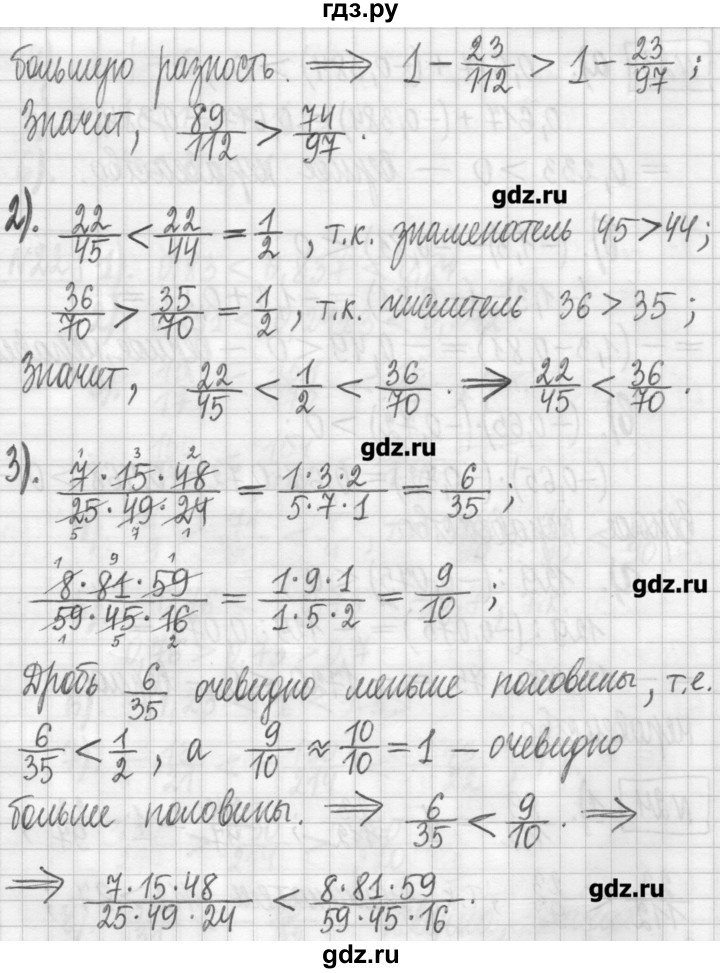 гдз.ру
большую разность. ⟹ 1 − 23/112 > 1 − 23/97 ;
Значит, 89/112 > 74/97 .
gdz.ru
2). 22/45 < 22/44 = 1/2 , т.к. знаменатель 45 > 44 ;
36/70 > 35/70 = 1/2 , т.к. числитель 36 > 35 ;
Значит, 22/45 < 1/2 < 36/70 . ⟹ 22/45 < 36/70 .
gdz.ru
3). 7·15·48/25·49·24 = 1·3·2/5·7·1 = 6/35 ;
8·81·59/59·45·16 = 1·9·1/1·5·2 = 9/10 ;
gdz.ru
Дробь 6/35 очевидно меньше половины, т.е.
6/35 < 1/2 , а 9/10 ≈ 10/10 = 1 – очевидно
больше половины. ⟹ 6/35 < 9/10 . ⟹
⟹ 7·15·48/25·49·24 < 8·81·59/59·45·16 .
gdz.ru
gdz.ru